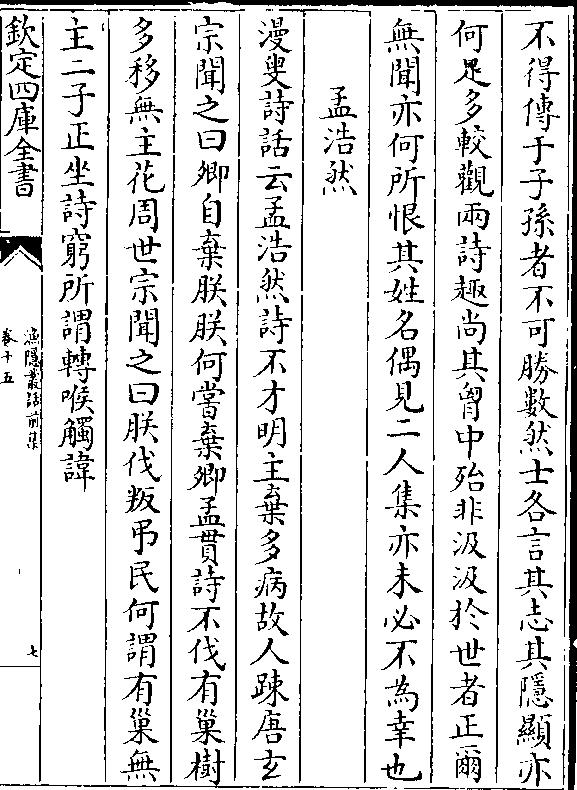 不得傳于子孫者不可勝數然士各言其志其隱顯亦
何足多較觀兩詩趣尚其胷中殆非汲汲於世者正爾
無聞亦何所恨其姓名偶見二人集亦未必不為幸也
孟浩然
漫叟詩話云孟浩然詩不才明主棄多病故人踈唐玄
宗聞之曰卿自棄朕朕何嘗棄卿孟貫詩不伐有巢樹
多移無主花周世宗聞之曰朕伐叛弔民何謂有巢無
主二子正坐詩窮所謂轉喉觸諱
欽定四庫全書
漁隱叢話前集
卷十五
七